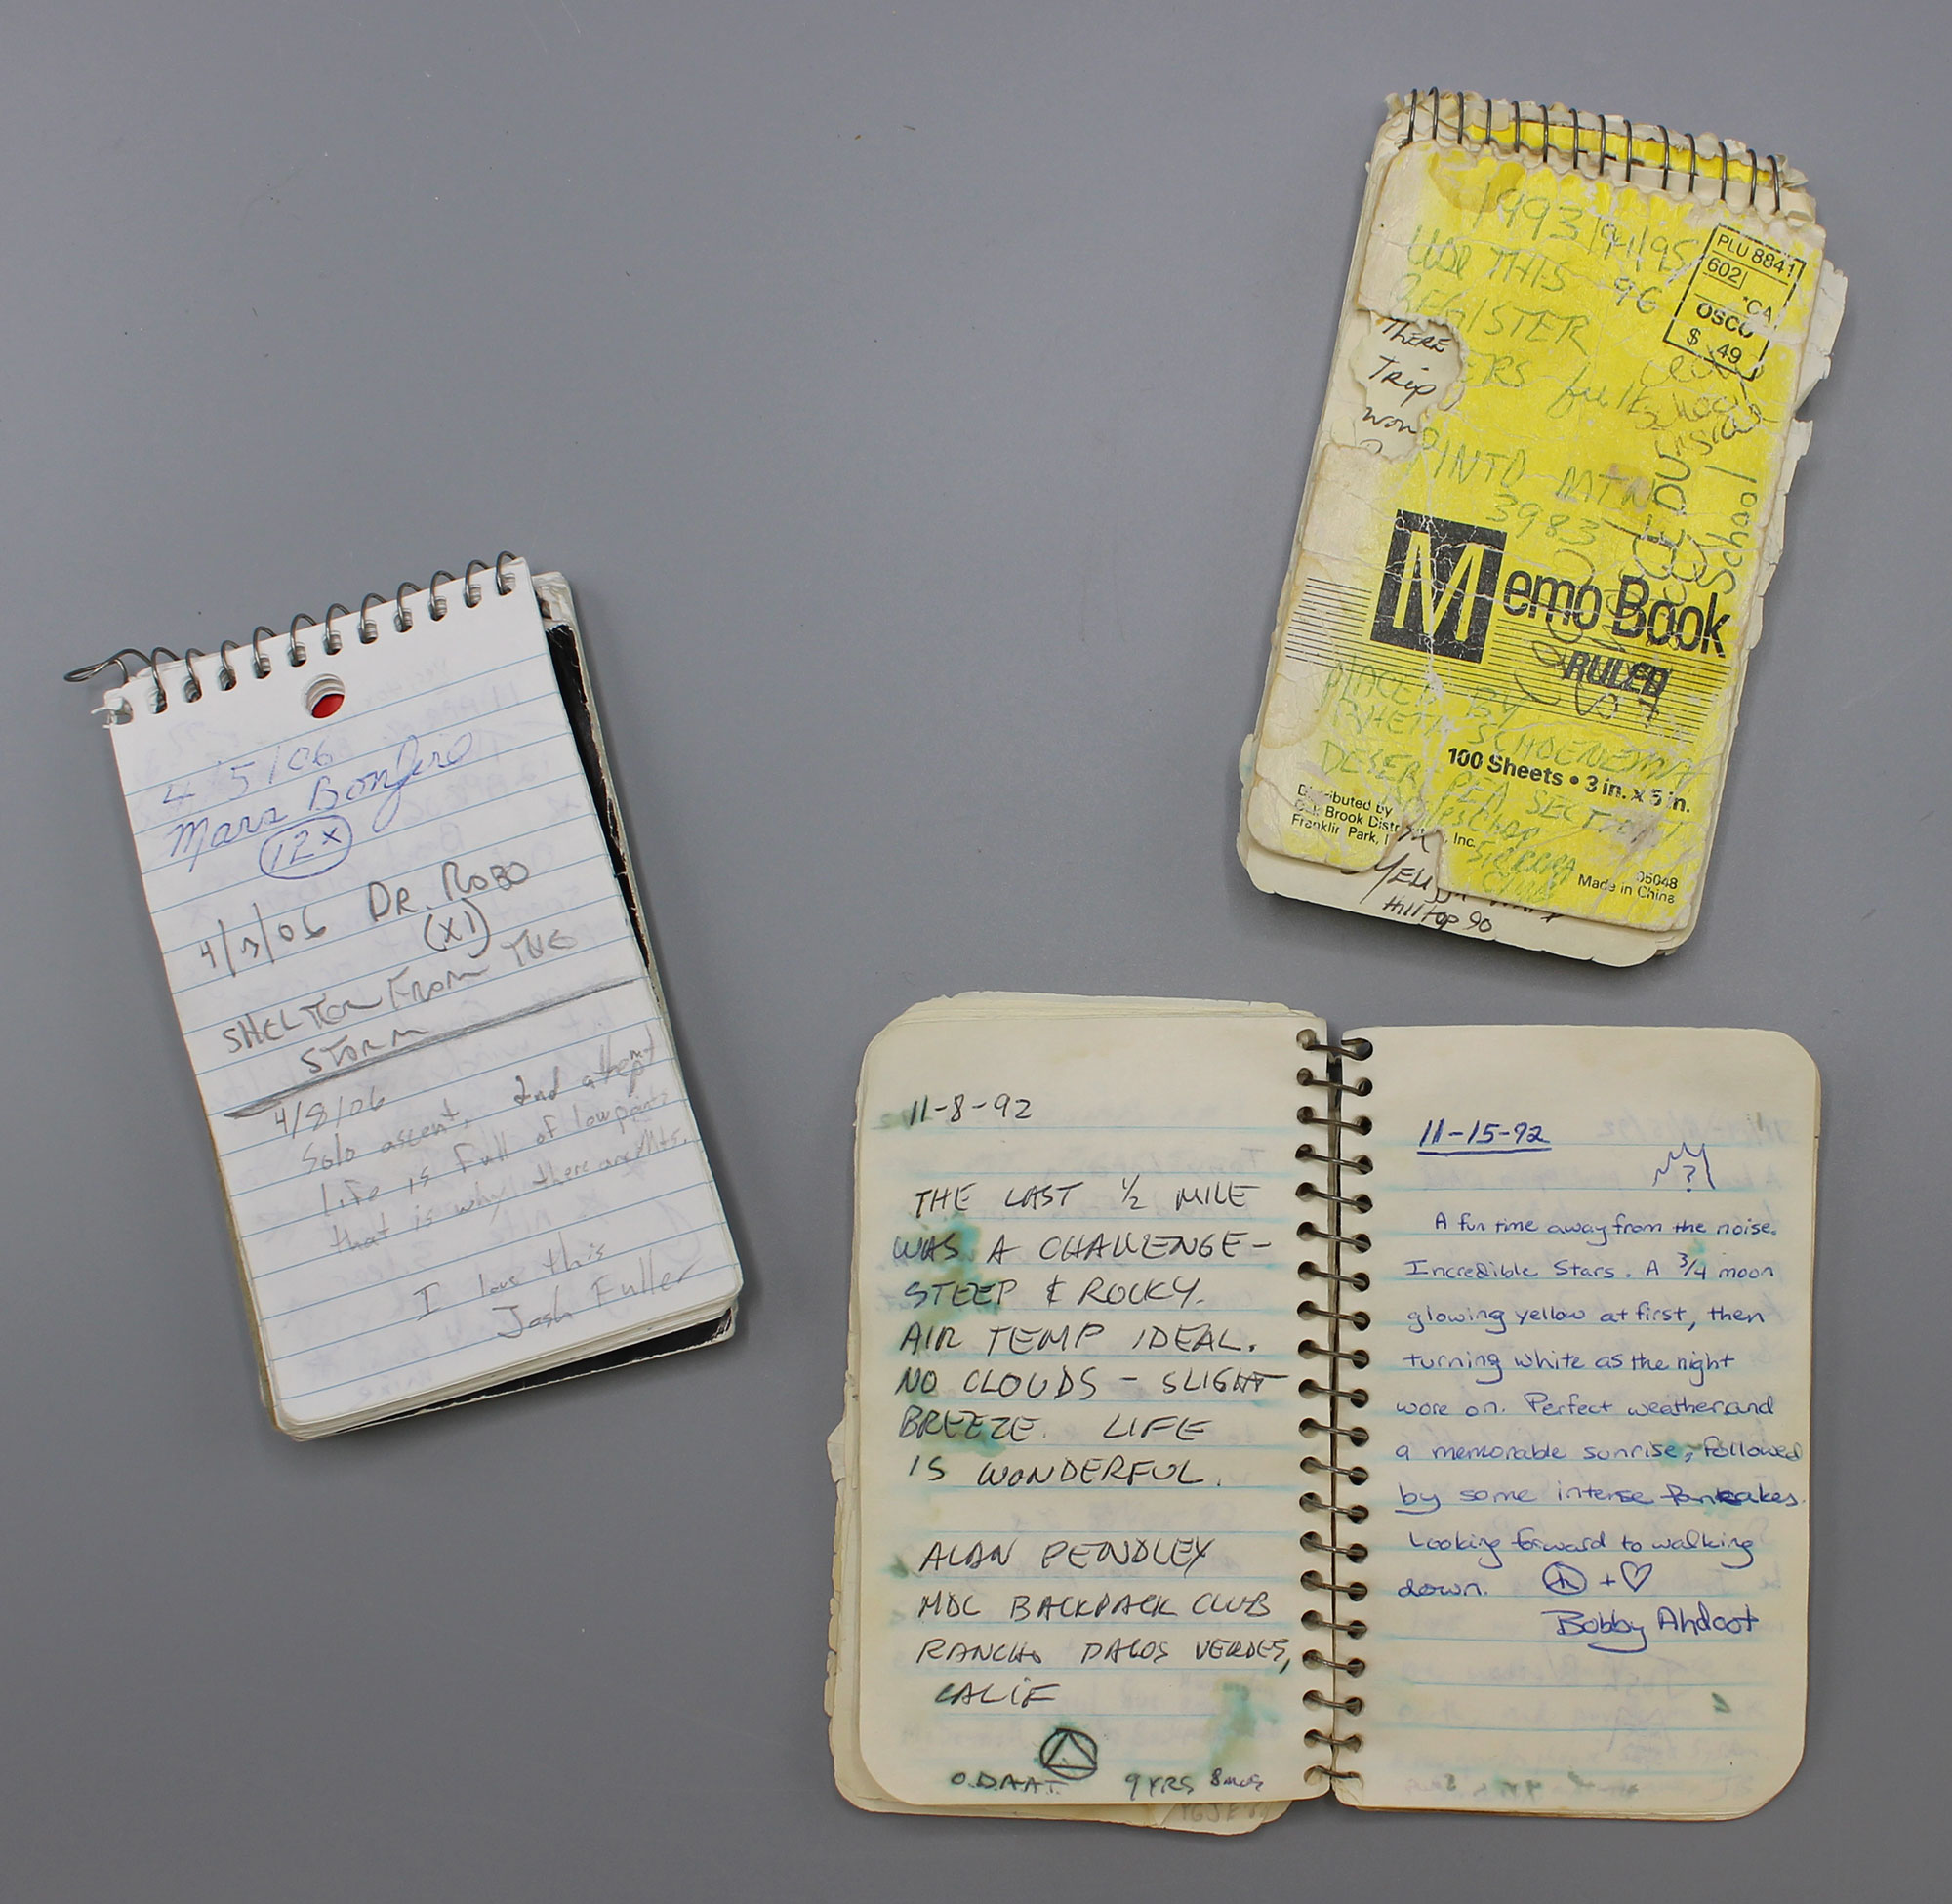 4/5/06
Mara Bonfero
12x
4/7/06 DR. ROBO
(X1)
SHELTER FROM THE
STORM
4/8/06
Solo ascent, 2nd attept
life is full of lowpoints
that is why there are Mts.
I love this
Josh Fuller
1993/94/95
USE THIS 96
REGISTER
full
PINTO MTN
3983
CEDU
School
PLU 8841
602
*CA
OSCO
$ .49
THERE
Trip
won
Memo Book
RULED
PLACED BY
RHETA SCHOENEMAN
DESERT PEA SECTION
100 Sheets • 3 in. x 5 in.
Angeles Chap
SIERRA
Club
Distributed by
Oak Brook Distr , Inc.
Franklin Park, I
05048
Made in China
Hilltop 90
11-8-92
THE LAST 1/2 MILE
WAS A CHALLENGE-
STEEP & ROCKY.
AIR TEMP IDEAL.
NO CLOUDS - SLIGHT
BREEZE. LIFE
IS WONDERFUL.
ALAN PENDLEY
MDC BACKPACK CLUB
RANCHO PALOS VERDES,
CALIF
O.D.A.A.T. 9 YRS 8 mos
11-15-92
?
A fun time away from the noise.
Incredible Stars. A 3/4 moon
glowing yellow at first, then
turning white as the night
wore on. Perfect weather and
a memorable sunrise, followed
by some intense pancakes.
Looking forward to walking
down. + ♡
Bobby Ahdoot